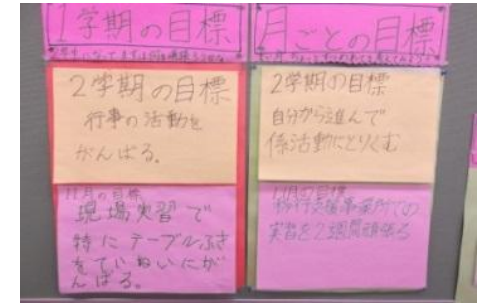 1学期の目標
2学期の目標
行事の活動を
がんばる。
11月の目標
現場実習で
特にテーブルふき
をていねいにが
んばる。
月ごとの目標
2学期の目標
自分から進んで
係活動にとりくむ
11月の目標
移行支援事業所での
実習を2週間頑張る